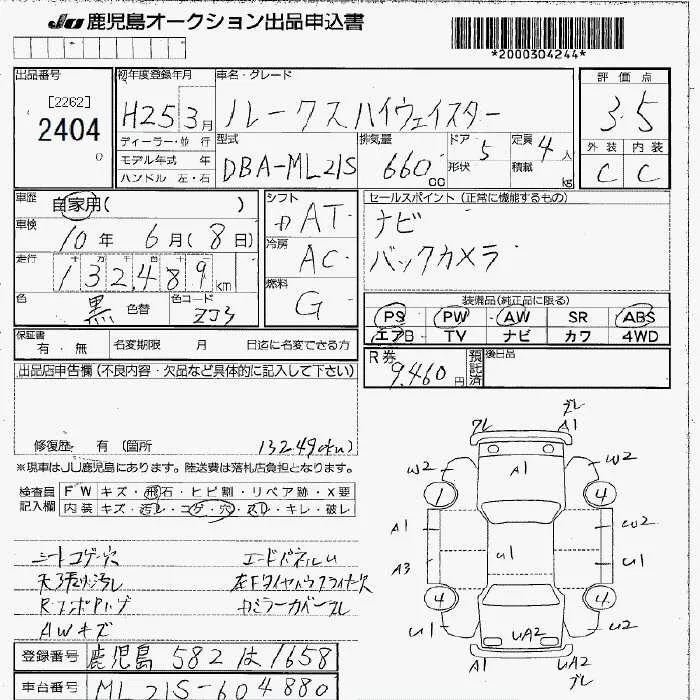 JU 鹿児島オークション出品申込書
*2000304244*
出品番号
[2262]
2404
初年度登録年月
H25 3月
ディーラー・並行
モデル年式 年
ハンドル 左・右
車名・グレード
ルークスハイウェイスター
型式
DBA-ML21S
排気量
660 cc
ドア 5
形状
定員 4 人
積載 kg
評価点
3.5
外装 内装
C C
車歴
自家用( )
車検
10年 6月(8日)
走行
十 万 千 百 十 一
132,489 km
色
黒 色替
色コード
ZJ3
シフト
AT
冷房
AC
燃料
G
セールスポイント(正常に機能するもの)
ナビ
バックカメラ
装備品(純正品に限る)
PS PW AW SR ABS
エアB TV ナビ カワ 4WD
保証書
有・無
名変期限 月 日迄に名変できる方
R券
9,460円
預託済
後日品
出品店申告欄(不良内容・欠品など具体的に記入して下さい)
修復歴 有(箇所
※現車はJU鹿児島にあります。陸送費は落札店負担となります。
検査員記入欄
FW キズ・飛石・ヒビ割・リペア跡・X要
内装 キズ・汚レ・コゲ・穴・スレ・キレ・破レ
シートコゲ穴
天張汚レ
AWキズ
左Fタイヤハウスライナー欠
ミラーカバーズレ
ズレ
A1
A1
W2 W2
1 4
A1 W2
U1
A3 U1
4 4
U1 U2
UA2
A1 UA2
ズレ
登録番号 鹿児島 582 は 1658
車台番号 ML21S-604880